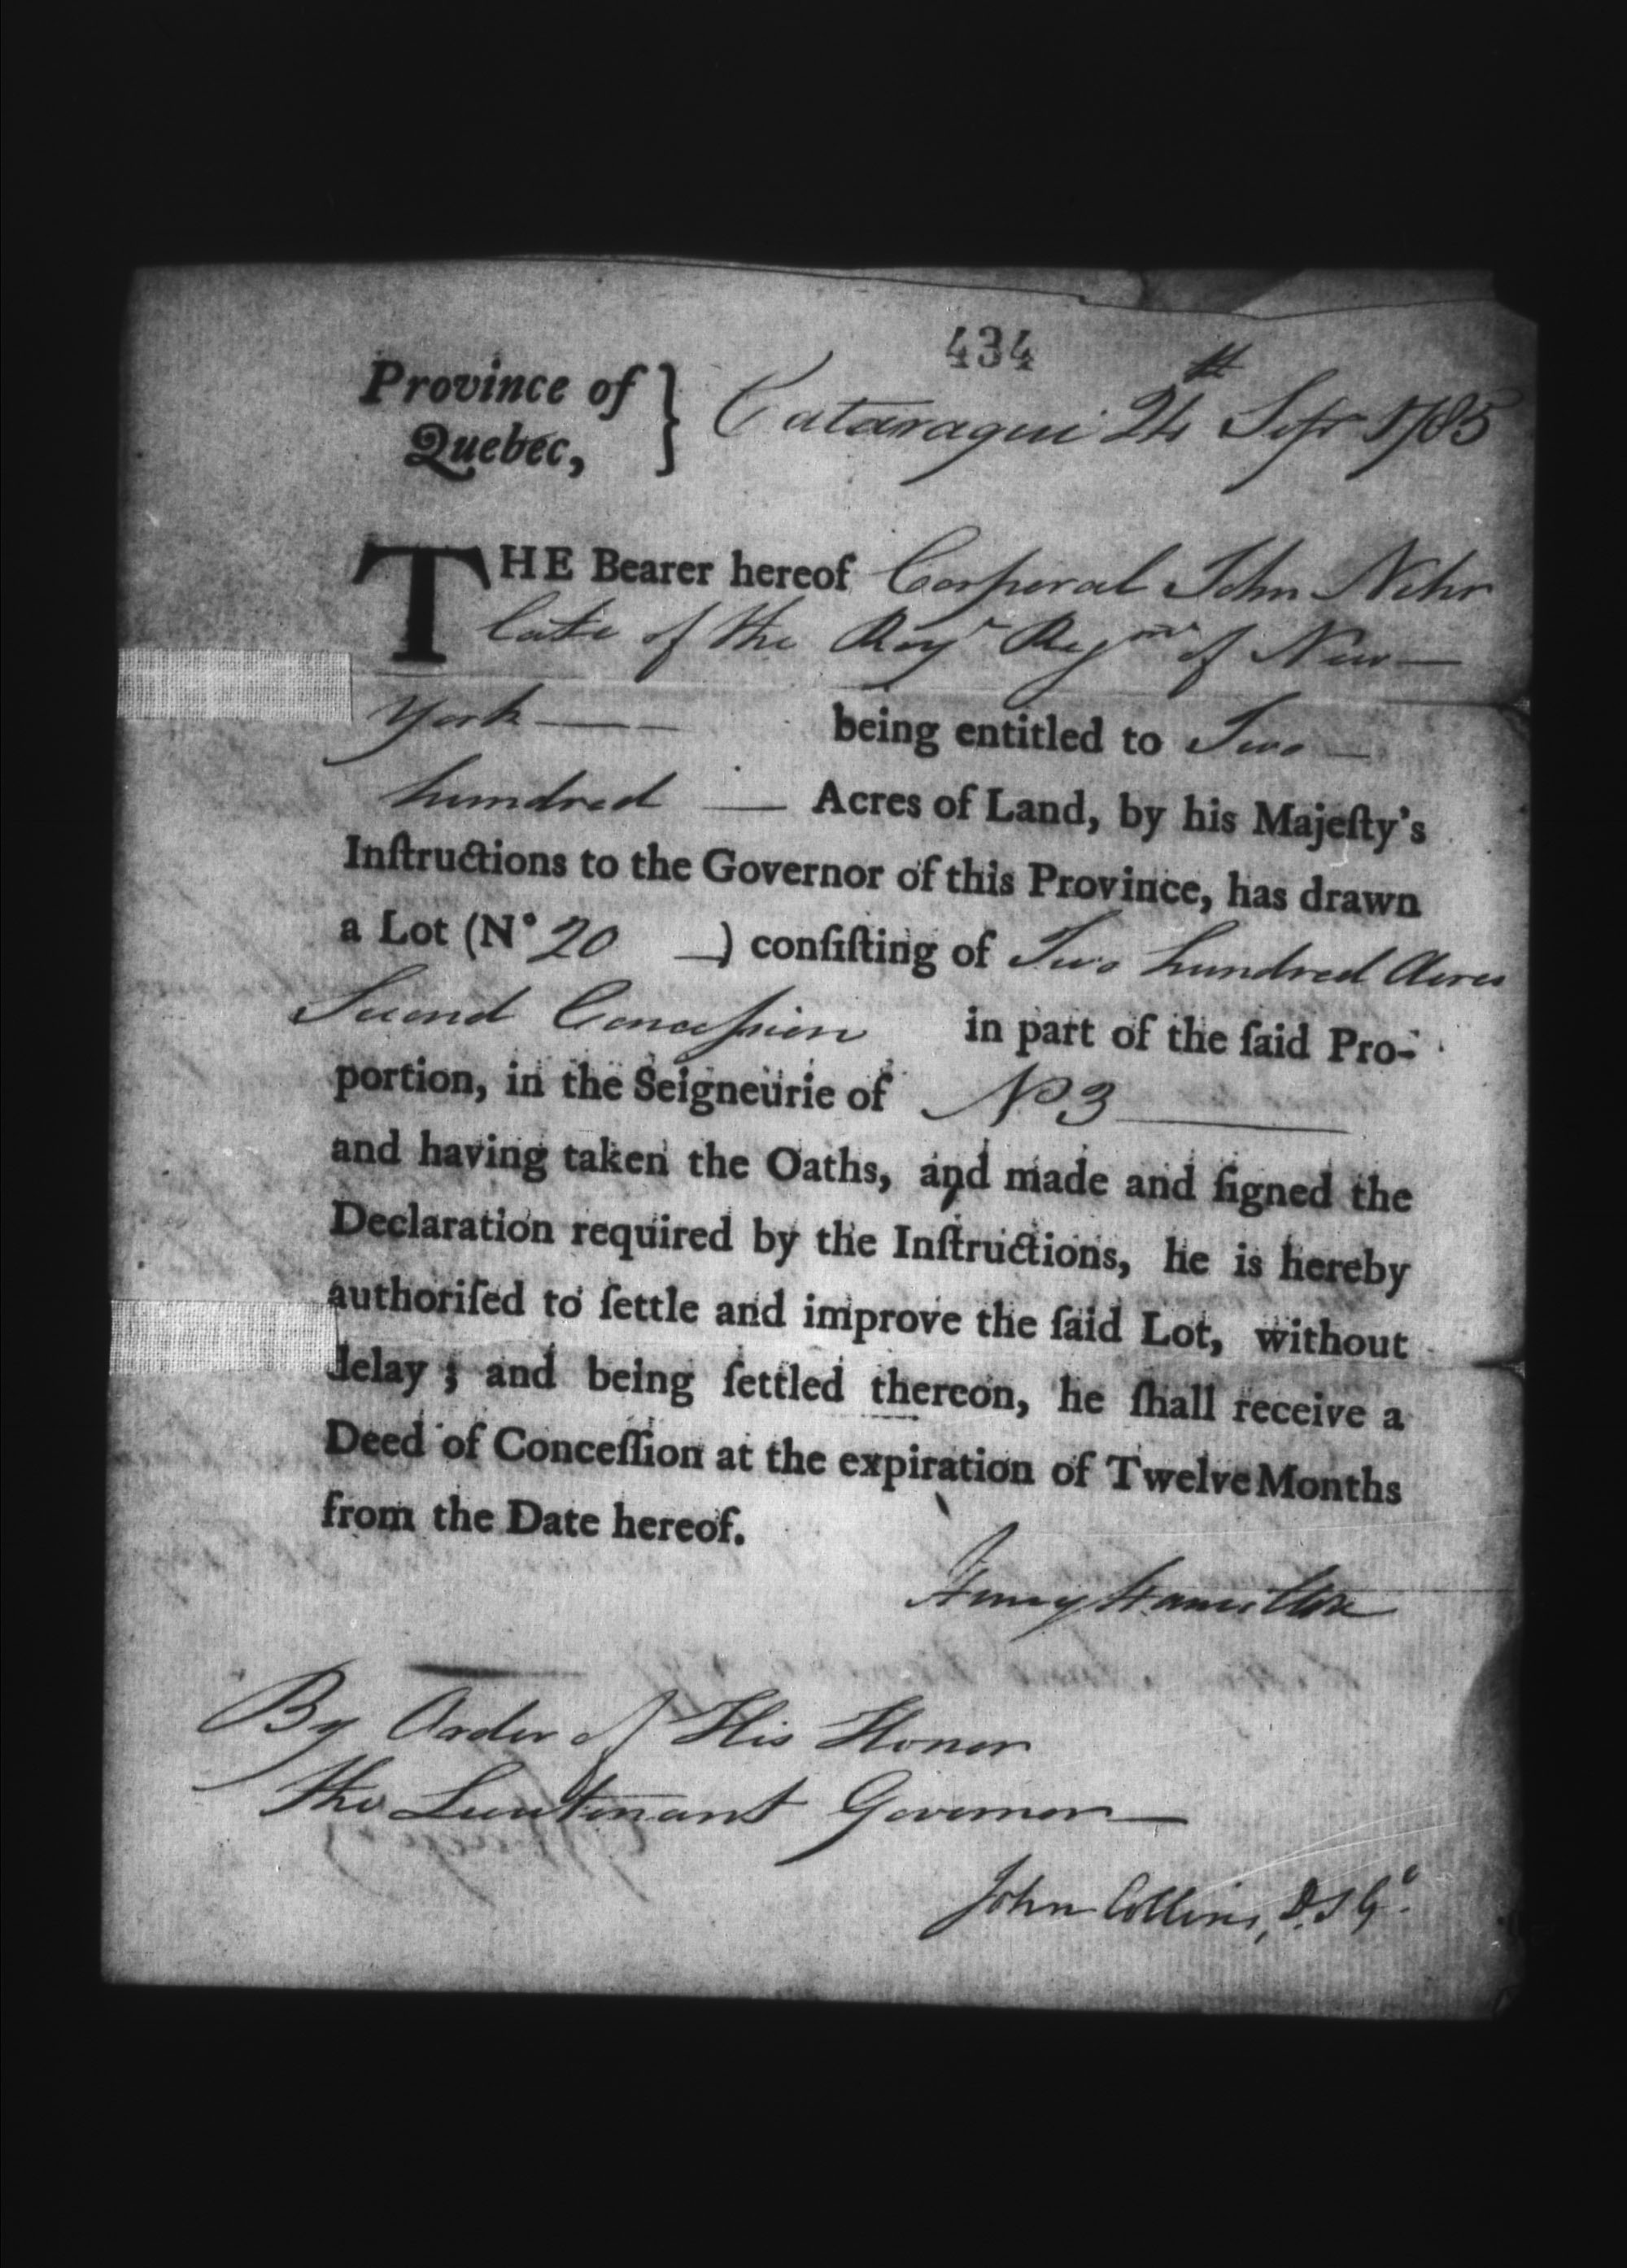 434
Province of
Quebec, } Cataraqui 24th Sepr 1785
THE Bearer hereof Corporal John Nehr
late of the Royl Regmt of New—
York—— being entitled to Two—
hundred — Acres of Land, by his Majeſty's
Inſtructions to the Governor of this Province, has drawn
a Lot (N° 20 —) conſiſting of Two hundred Acres
Second Conceſsion in part of the ſaid Pro-
portion, in the Seigneurie of No 3
and having taken the Oaths, and made and ſigned the
Declaration required by the Inſtructions, he is hereby
authoriſed to ſettle and improve the ſaid Lot, without
delay; and being ſettled thereon, he ſhall receive a
Deed of Conceſſion at the expiration of Twelve Months
from the Date hereof.
Henry Hamilton
By Order of His Honor
the Lieutenant Governor—
John Collins, D.S.Gl.